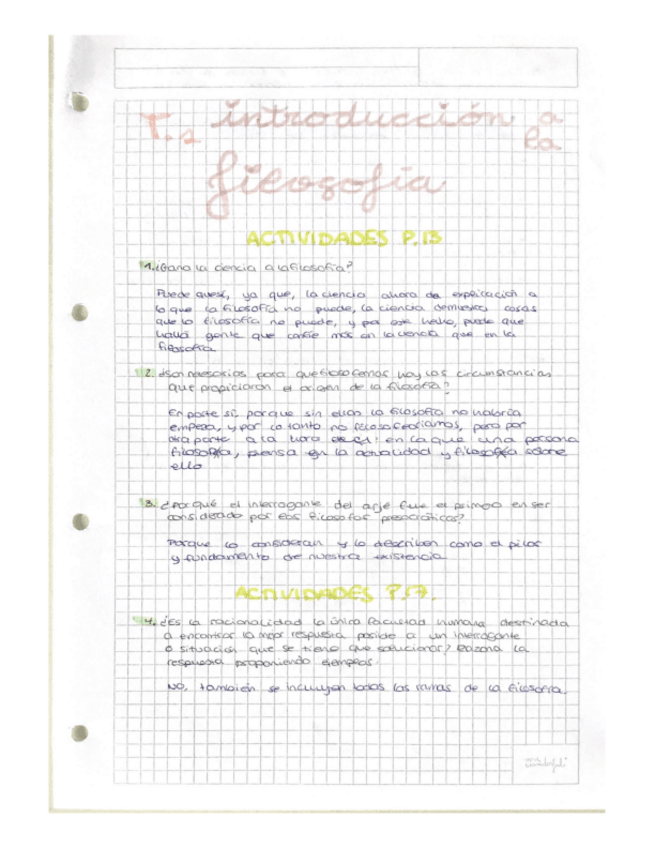 T.1 introducción a
la
filosofía
ACTIVIDADES P.13
1. ¿Gana la ciencia a la filosofía?
Puede que sí, ya que, la ciencia ahora da explicación a
lo que la filosofía no puede, la ciencia demuestra cosas
que la filosofía no puede, y por este hecho, puede que
haya gente que confíe más en la ciencia que en la
filosofía
2. ¿Son necesarias para que filosofemos hoy las circunstancias
que propiciaron el origen de la filosofía?
En parte sí, porque sin ellas la filosofía no habría
empeza, y por lo tanto no filosofearíamos, pero por
otra parte a la hora en la que una persona
filosofía, piensa en la actualidad y filosofía sobre
ello
3. ¿Por qué el interrogante del arjé fue el primero en ser
considerado por los filósofos presocráticos?
Porque lo consideran y lo describen como el pilar
y fundamento de nuestra existencia
ACTIVIDADES P.17.
4. ¿Es la racionalidad la única facultad humana destinada
a encontrar la mejor respuesta posible a un interrogante
o situación que se tiene que solucionar? Razona la
respuesta proponiendo ejemplos.
NO, también se incluyen todas las ramas de la filosofía.